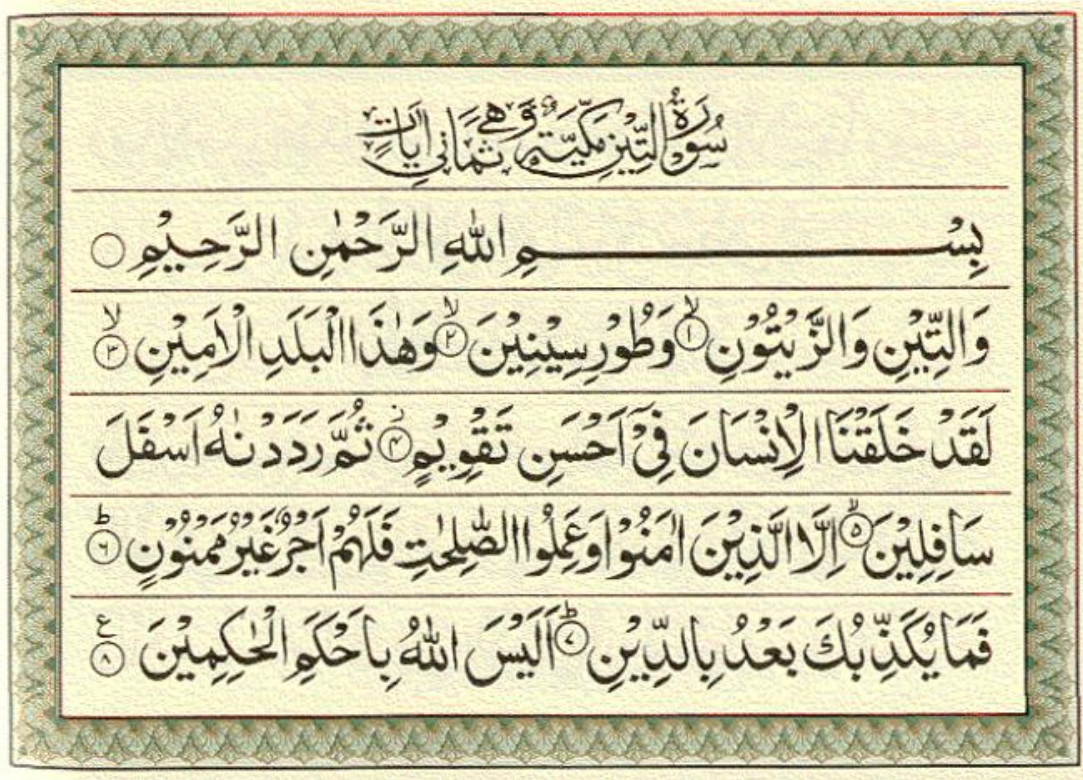 سُورَةُ التِّينِ مَكِّيَّةٌ وَهِيَ ثَمَانِي اٰيَاتٍ
بِسْــــــــــــمِ اللّٰهِ الرَّحْمٰنِ الرَّحِيْمِ ۝
وَالتِّيْنِ وَالزَّيْتُوْنِ ۙ﴿۱﴾ وَطُوْرِ سِيْنِيْنَ ۙ﴿۲﴾ وَهٰذَا الْبَلَدِ الْاَمِيْنِ ۙ﴿۳﴾
لَقَدْ خَلَقْنَا الْاِنْسَانَ فِيْٓ اَحْسَنِ تَقْوِيْمٍ ۫﴿۴﴾ ثُمَّ رَدَدْنٰهُ اَسْفَلَ
سَافِلِيْنَ ۙ﴿۵﴾ اِلَّا الَّذِيْنَ اٰمَنُوْا وَعَمِلُوا الصّٰلِحٰتِ فَلَهُمْ اَجْرٌ غَيْرُ مَمْنُوْنٍ ؕ﴿۶﴾
فَمَا يُكَذِّبُكَ بَعْدُ بِالدِّيْنِ ؕ﴿۷﴾ اَلَيْسَ اللّٰهُ بِاَحْكَمِ الْحٰكِمِيْنَ ﴿۸﴾ ع